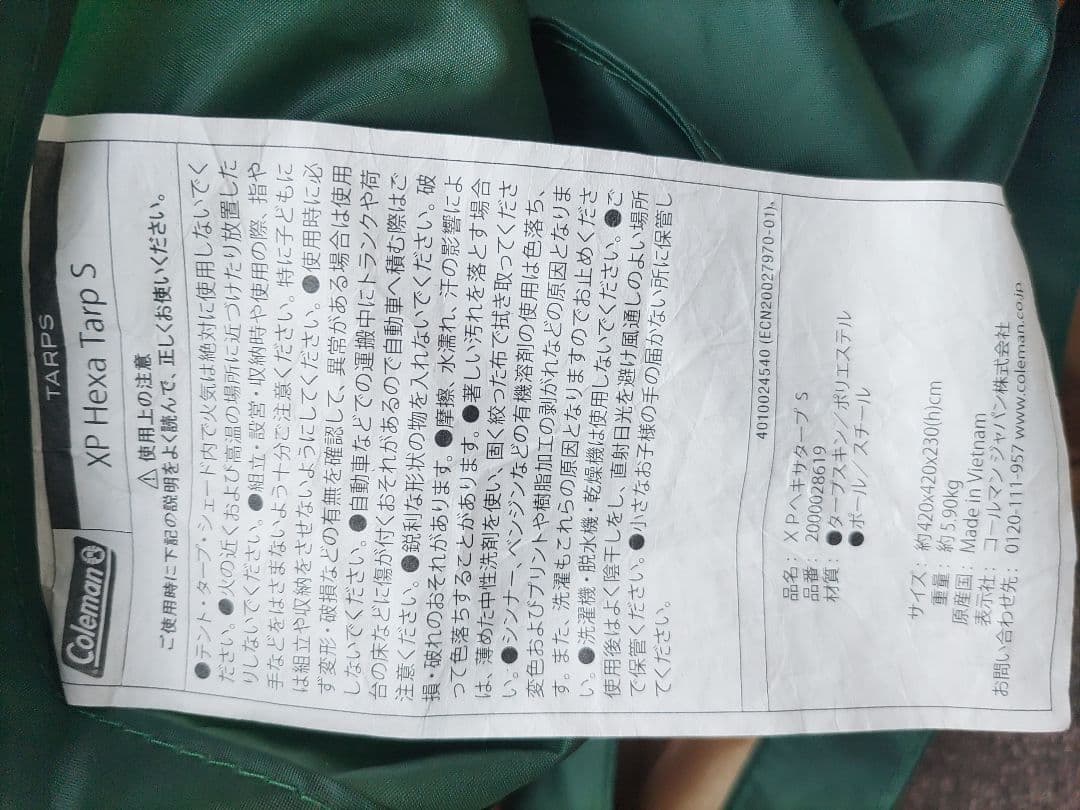 Coleman
TARPS
XP Hexa Tarp S
⚠ 使用上の注意
ご使用時に下記の説明をよく読んで、正しくお使いください。
●テント・タープ・シェード内で火気は絶対に使用しないでく
ださい。●火の近くおよび高温の場所に近づけたり放置した
りしないでください。●組立・設営・収納時や使用の際、指や
手などをはさまないよう十分ご注意ください。特に子どもに
は組立や収納をさせないようにしてください。●使用時に必
ず変形・破損などの有無を確認して、異常がある場合は使用
しないでください。●自動車などでの運搬中にトランクや荷
台の床などに傷が付くおそれがあるので自動車へ積む際はご
注意ください。●鋭利な形状の物を入れないでください。破
損・破れのおそれがあります。●摩擦、水濡れ、汗の影響によ
って色落ちすることがあります。●著しい汚れを落とす場合
は、薄めた中性洗剤を使い、固く絞った布で拭き取ってくださ
い。●シンナー、ベンジンなどの有機溶剤の使用は色落ち、
変色およびプリントや樹脂加工の剥がれなどの原因となりま
す。また、洗濯もこれらの原因となりますのでお止めくださ
い。●洗濯機・脱水機・乾燥機は使用しないでください。●ご
使用後はよく陰干しをし、直射日光を避け風通しのよい場所
で保管ください。●小さなお子様の手の届かない所に保管し
てください。
4010024540 (ECN20027970-01)
品名： ＸＰヘキサタープＳ
品番： 2000028619
材質： ●タープスキン／ポリエステル
●ポール／スチール
サイズ： 約420x420x230(h)cm
重量： 約5.90kg
原産国： Made in Vietnam
表示社： コールマン ジャパン株式会社
お問い合わせ先： 0120-111-957 www.coleman.co.jp